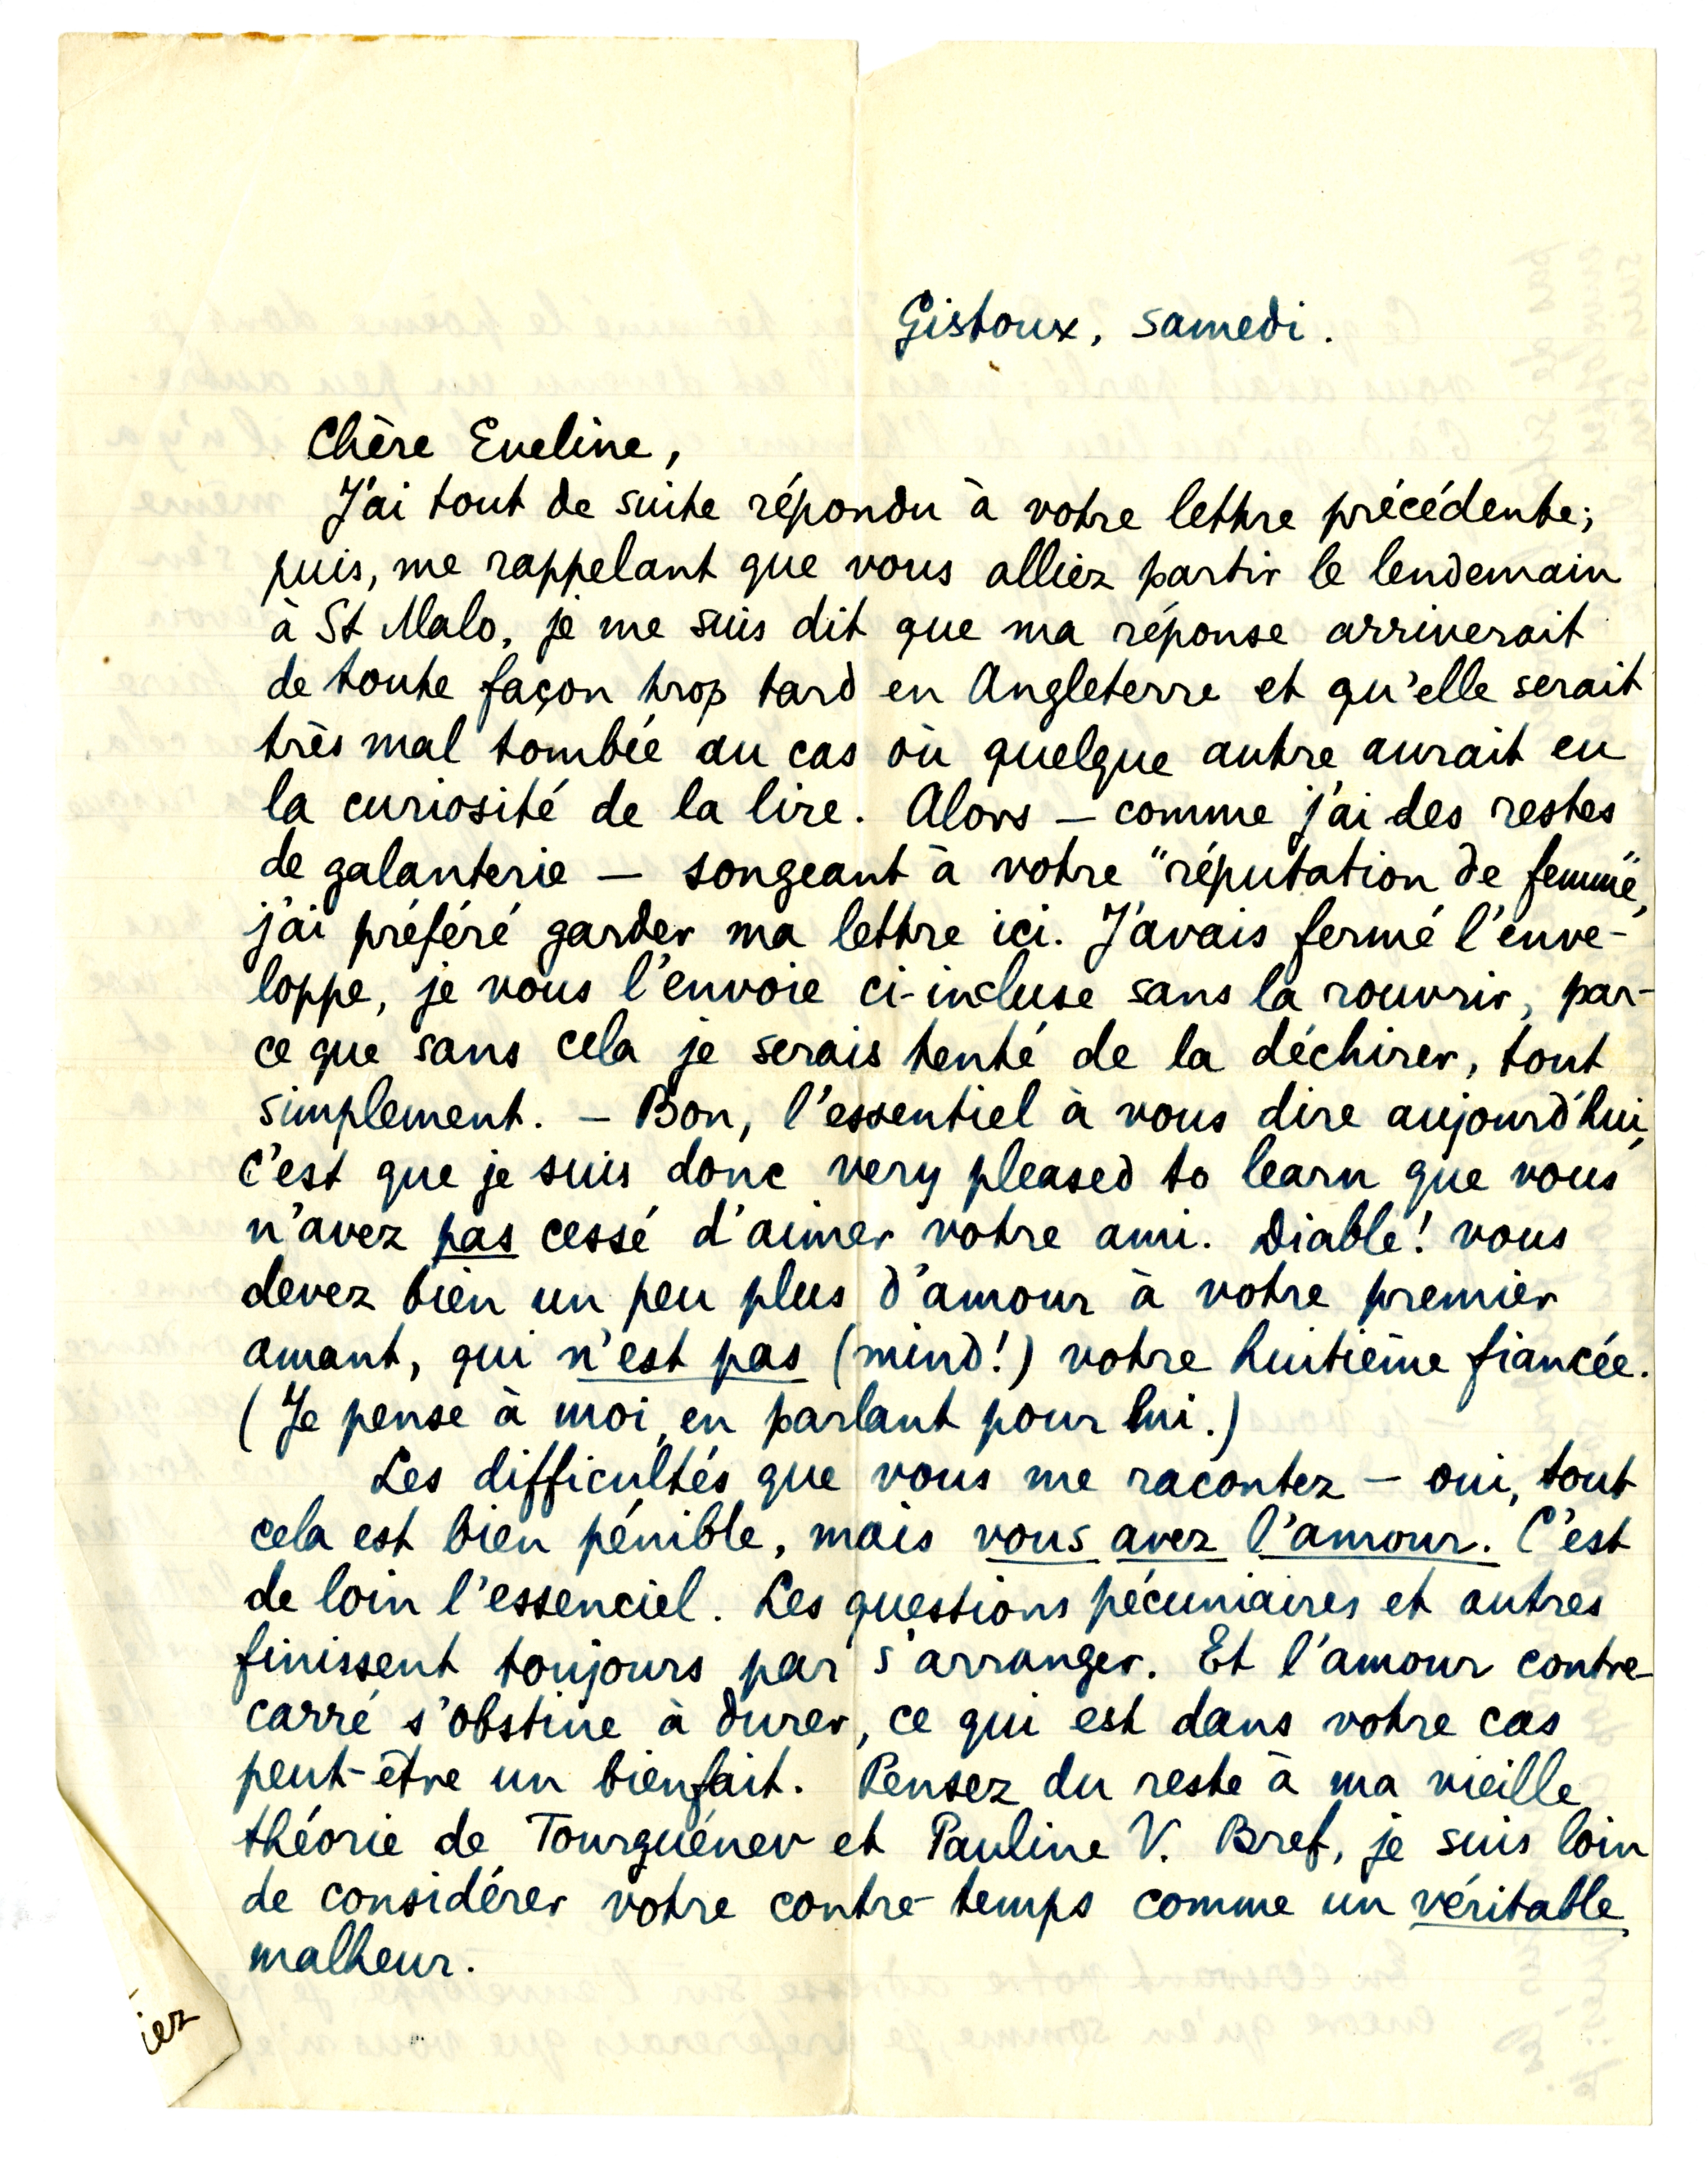 Gistoux, samedi.
Chère Eveline,
J'ai tout de suite répondu à votre lettre précédente;
puis, me rappelant que vous alliez partir le lendemain
à St Malo, je me suis dit que ma réponse arriverait
de toute façon trop tard en Angleterre et qu'elle serait
très mal tombée au cas où quelque autre aurait eu
la curiosité de la lire. Alors — comme j'ai des restes
de galanterie — songeant à votre "réputation de femme",
j'ai préféré garder ma lettre ici. J'avais fermé l'enve-
loppe, je vous l'envoie ci-incluse sans la rouvrir, par-
ce que sans cela je serais tenté de la déchirer, tout
simplement. — Bon, l'essentiel à vous dire aujourd'hui,
c'est que je suis donc very pleased to learn que vous
n'avez pas cessé d'aimer votre ami. Diable! vous
devez bien un peu plus d'amour à votre premier
amant, qui n'est pas (mind!) votre huitième fiancée.
(Je pense à moi, en parlant pour lui.)
Les difficultés que vous me racontez — oui, tout
cela est bien pénible, mais vous avez l'amour. C'est
de loin l'essenciel. Les questions pécuniaires et autres
finissent toujours par s'arranger. Et l'amour contre-
carré s'obstine à durer, ce qui est dans votre cas
peut-être un bienfait. Pensez du reste à ma vieille
théorie de Tourguénev et Pauline V. Bref, je suis loin
de considérer votre contre-temps comme un véritable
malheur.
iez